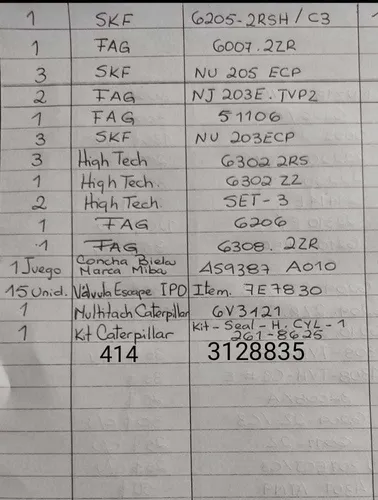 1 SKF 6205-2RSH/C3
1 FAG 6007.2ZR
3 SKF NU 205 ECP
2 FAG NJ 203E.TVP2
1 FAG 51106
3 SKF NU 203ECP
3 High Tech 6302 2RS
1 High Tech. 6302 ZZ
2 High Tech. SET-3
1 FAG 6206
1 FAG 6308.2ZR
1 Juego Concha Biela Marca Miba AS9387 A010
15 Unid. Válvula Escape IPD Item. 7E7830
1 Multitach Caterpillar 6V3121
1 Kit Caterpillar Kit-Seal-H.CYL-1 261-8625
414 3128835